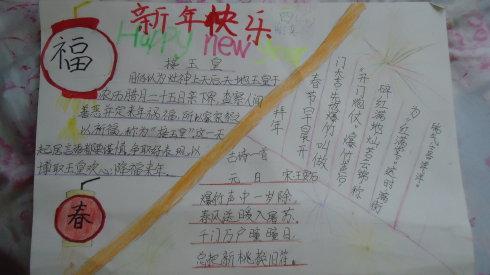 新年快乐
Happy new year
福
接玉皇
旧俗认为灶神上天后,天地玉皇于
农历腊月二十五日亲下界,查察人间
善恶,并定来年祸福,所以家家祭之
以祈福,称为“接玉皇”这一天
起居言语都要谨慎,争取好表现,以
博取玉皇欢心,降福来年。
古诗一首
元日 宋王安石
爆竹声中一岁除,
春风送暖入屠苏,
千门万户曈曈日,
总把新桃换旧符。
春
拜年
春节早晨开
门大吉,先放爆竹,叫做
“开门炮仗”。爆竹声后
碎红满地,灿若云锦,称
为“红满堂”。这时满街